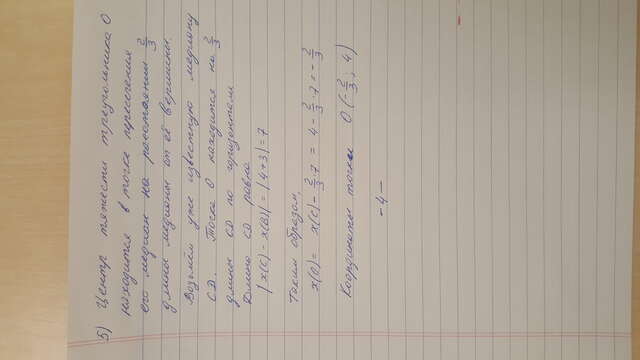 5) Центр тяжести треугольника О
находится в точке пересечения
его медиан на расстоянии 2/3
длины медианы от её вершины.
Возьмём уже известную медиану
CD. Точка О находится на 2/3
длины CD по горизонтали
Длина CD равна
|x(C) - x(B)| = |4+3| = 7
Таким образом,
x(O) = x(C) - 2/3·7 = 4 - 2/3·7 = - 2/3
Координаты точки О (-2/3; 4)
- 4 -